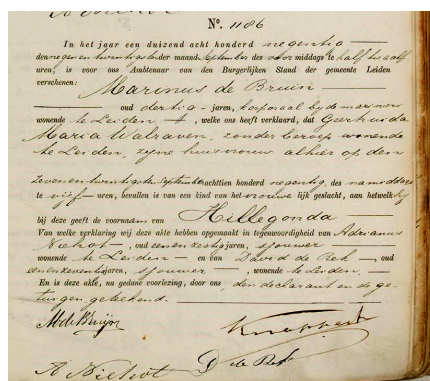 Nº. 1186
In het jaar een duizend acht honderd negentig
den negen en twintigsten der maand September des voor middags te half twaalf
uren, is voor ons Ambtenaar van den Burgerlijken Stand der gemeente Leiden
verschenen: Marinus de Bruin
oud dertig jaren, korporaal by de mariniers
wonende te Leiden, welke ons heeft verklaard, dat Geertruida
Maria Walraven, zonder beroep wonende
te Leiden, zyne huisvrouw alhier op den
zeven en twintigsten September achttien honderd negentig, des namiddags
te vijf uren, bevallen is van een kind van het vrouwelijk geslacht, aan hetwelk hij
bij dezen geeft de voornaam van Hillegonda
Van welke verklaring wij deze akte hebben opgemaakt in tegenwoordigheid van Adrianus
Niehot, oud een en zestig jaren, sjouwer
wonende te Leiden en van David de Reh, oud
een en zeventig jaren, sjouwer, wonende te Leiden.
En is deze akte, na gedane voorlezing, door ons, den declarant en de ge-
tuigen, geteekend.
M. de Bruijn
Knappert
A Niehot D de Reh